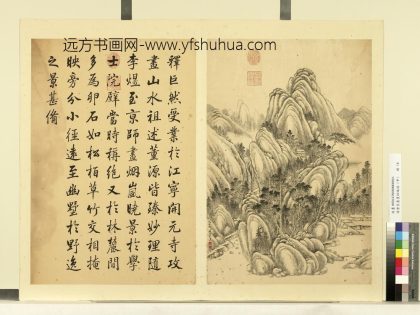 远方书画网-www.yfshuhua.com
釋巨然受業於江寧開元寺攻
畫山水祖述董源皆臻妙理隨
李煜至京師畫烟嵐曉景於學
士院壁當時稱絕又於林麓間
多為卵石如松栢草竹交相掩
映旁分小徑遠至幽墅於野逸
之景甚備